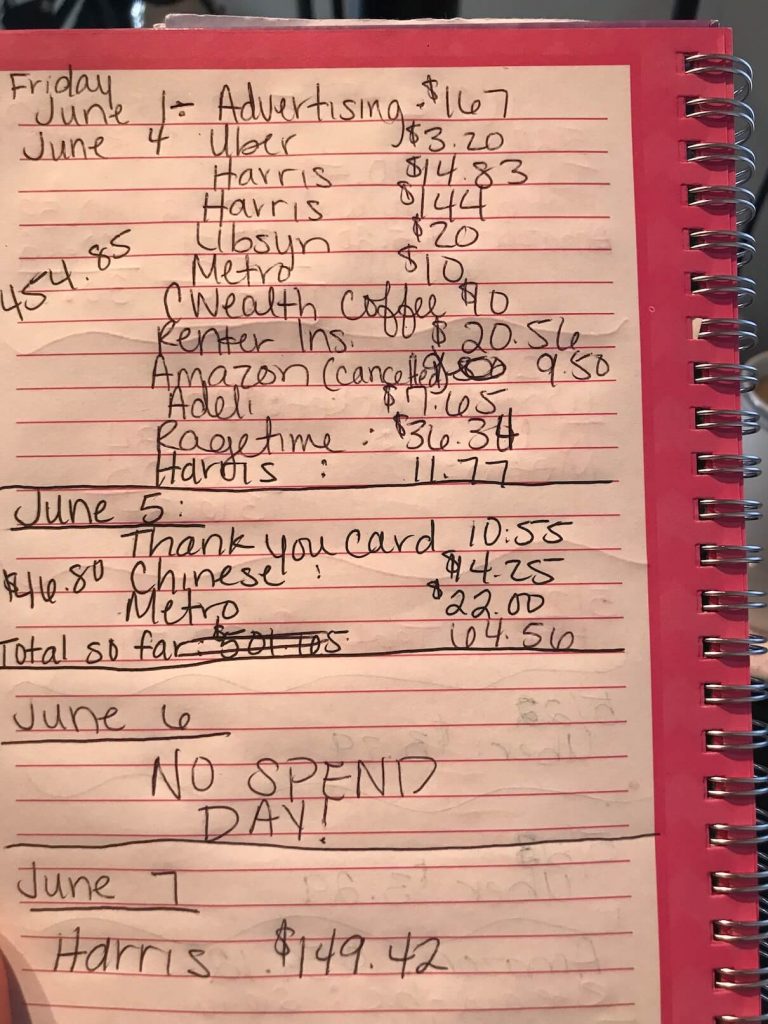 Friday
June 1÷ Advertising - $167
June 4 Uber $3.20
Harris $14.83
Harris $144
Libsyn $20
454.85
Metro $10
CWealth Coffee $10
Renter Ins. $20.56
Amazon (cancelled) 9.50
Adeli $7.65
Ragetime : $36.34
Harris : 11.77
June 5:
Thank you card 10:55
$46.80 Chinese : $14.25
Metro $22.00
Total so far: $501.65 64.56
June 6
NO SPEND
DAY!
June 7
Harris $149.42